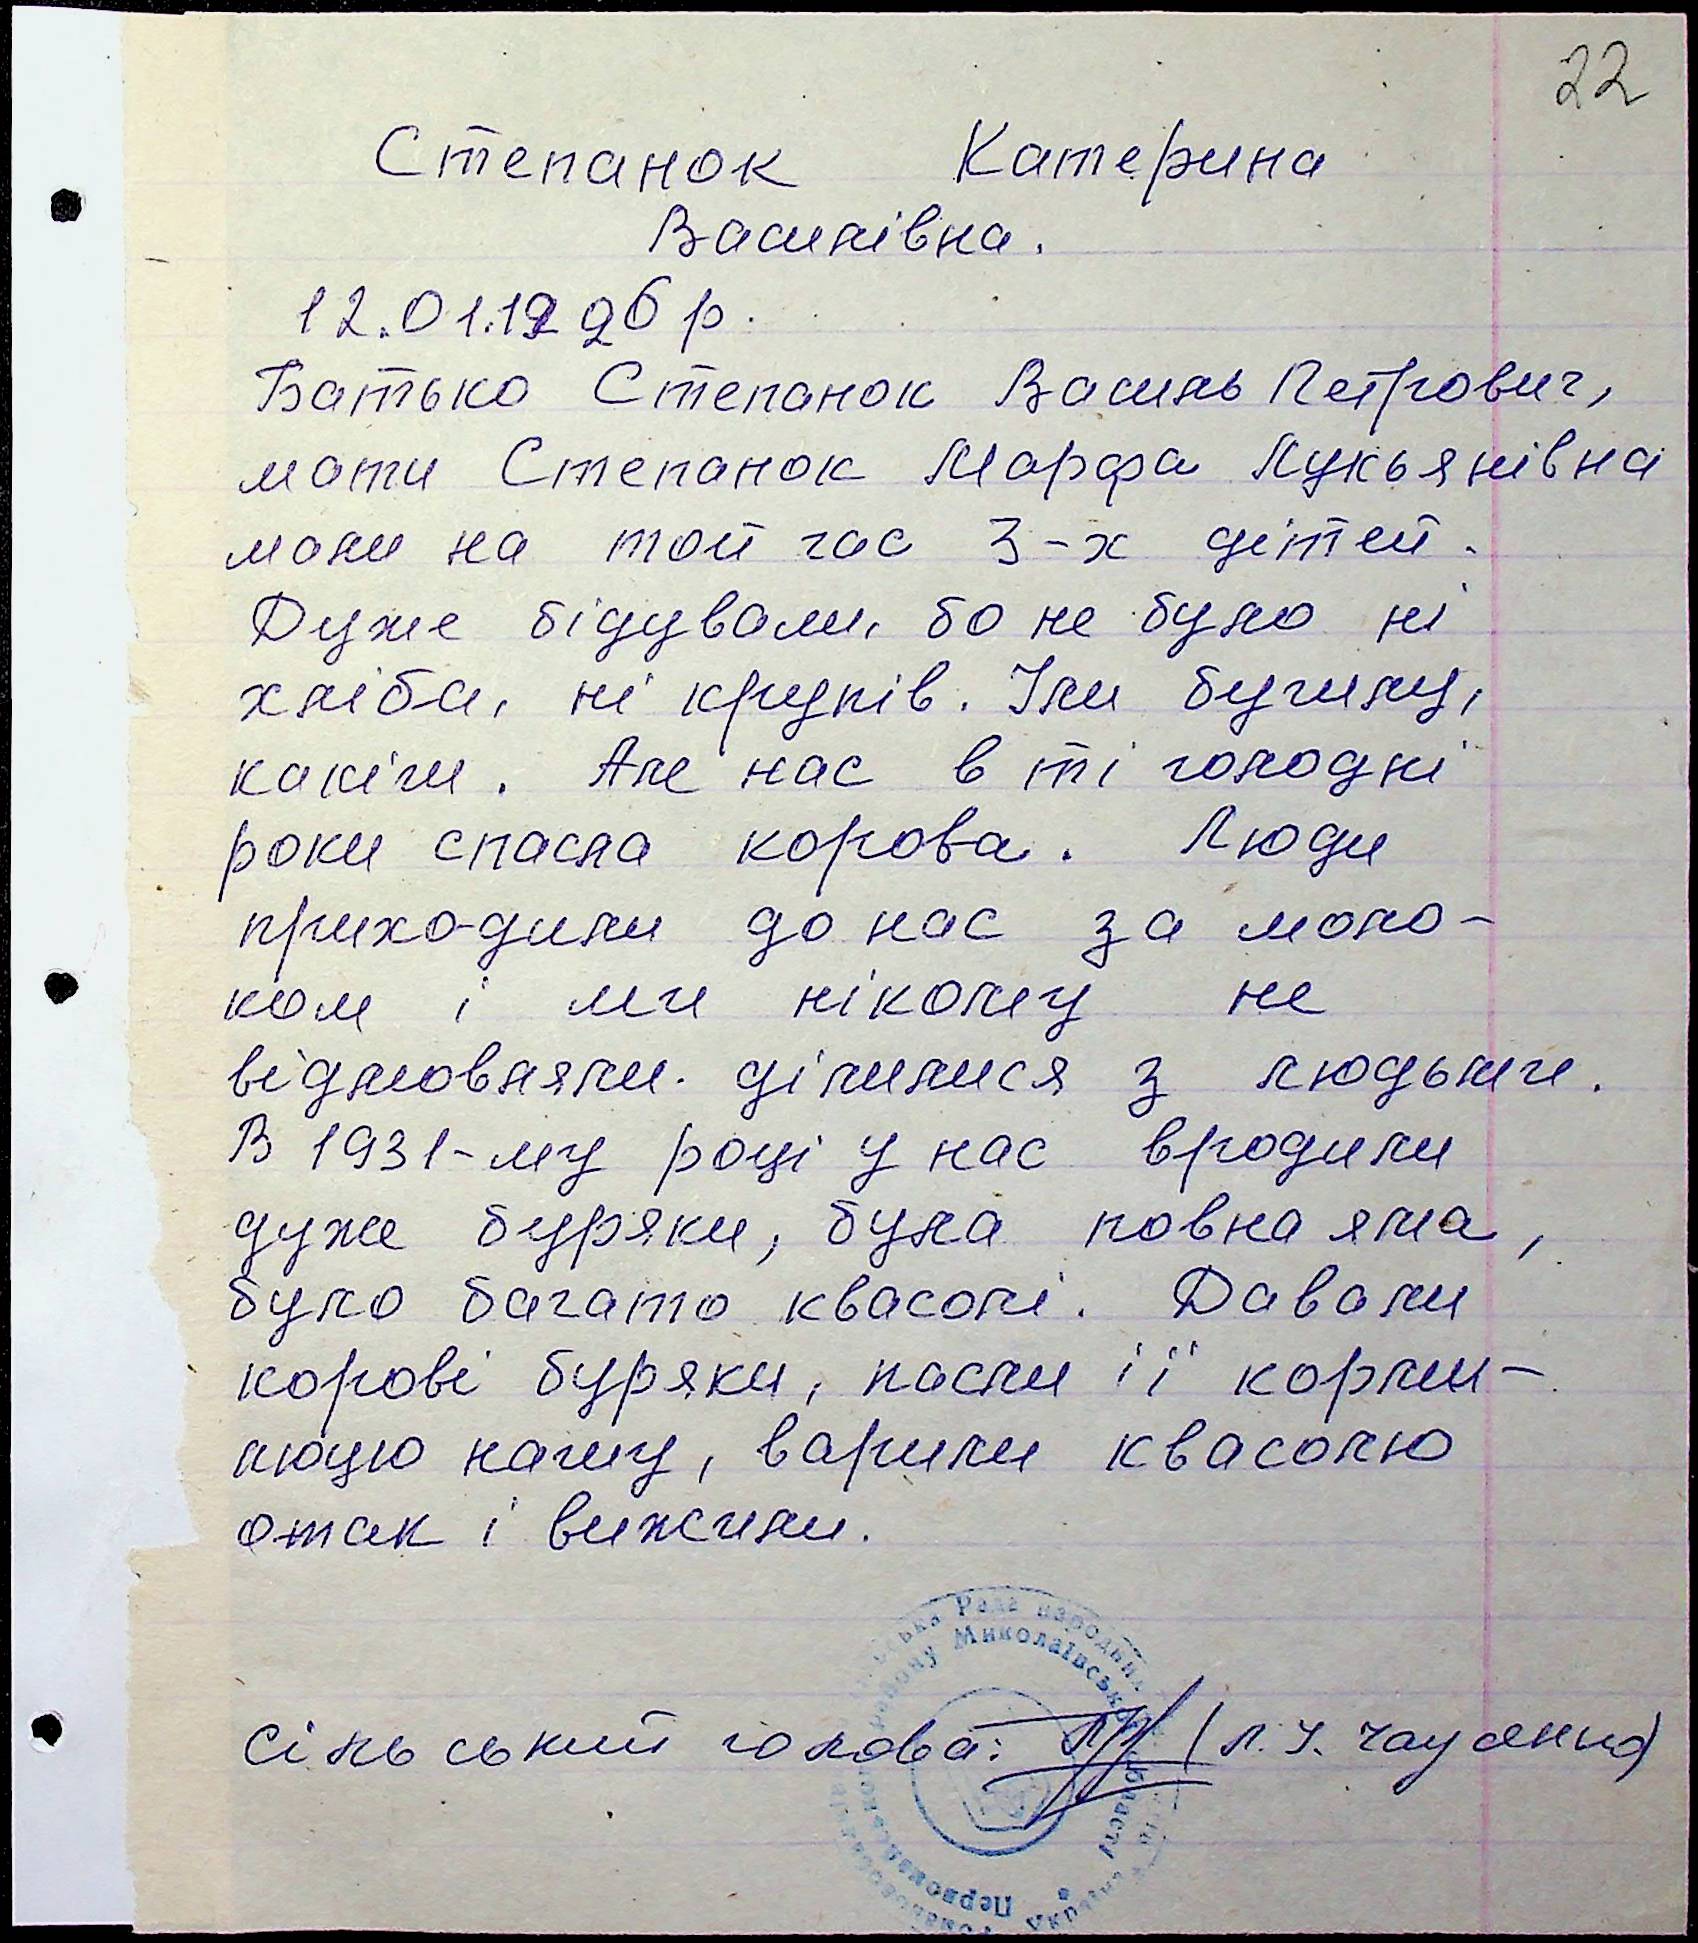 22
Степанок Катерина
Василівна.
12.01.1926 р.
Батько Степанок Василь Петрович,
мати Степанок Марфа Лукьянівна
мали на той час 3-х дітей.
Дуже бідували, бо не було ні
хліба, ні крупів. Їли бугилу,
качіги. Але нас в ті голодні
роки спасла корова. Люди
приходили до нас за моло-
ком і ми ніколму не
відмовляли. ділилися з людьми.
В 1931-му році у нас вродили
дуже буряки, була повна яма,
було багато квасолі. Давали
корові буряки, пасли її корми-
люцю нашу, варили квасолю
отак і вижили.
Рада народних
району Миколаївської області
Первомайського
Сільський голова: (Л. І.